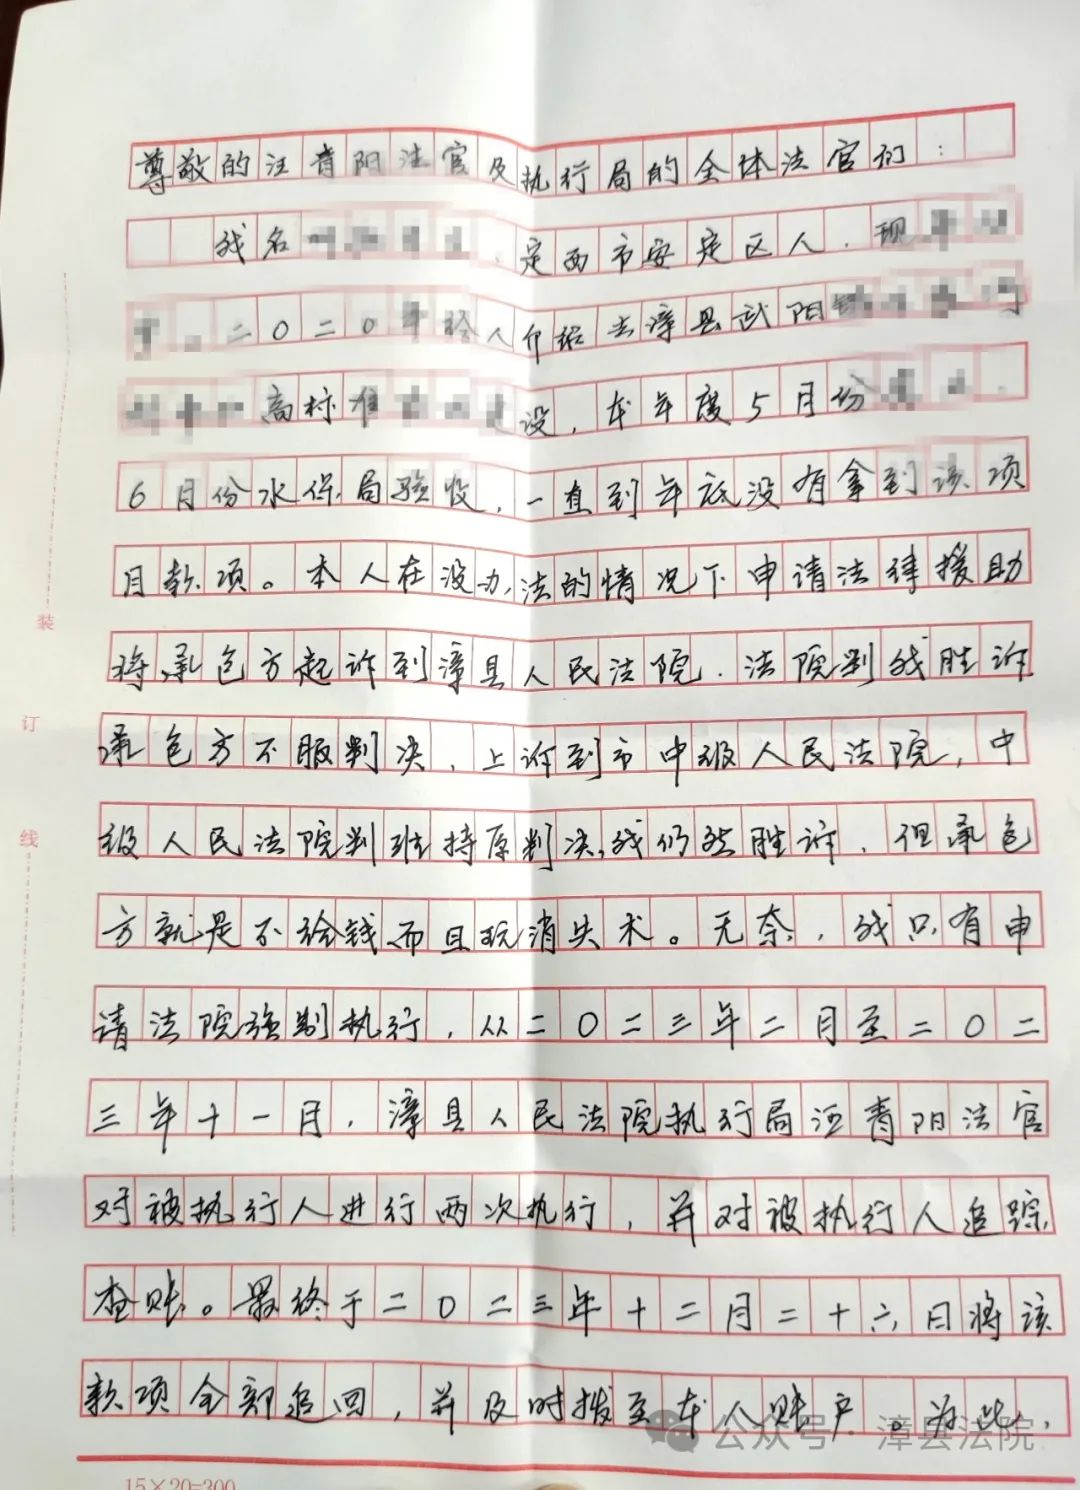 尊敬的汪青阳法官及执行局的全体法官们：
我名 、定西市安定区人，现
二〇二〇年经人介绍去漳县武阳
高标准 设，本年度5月份
6月份水保局验收，一直到年底没有拿到该项
目款项。本人在没办法的情况下申请法律援助
将承包方起诉到漳县人民法院．法院判我胜诉
承包方不服判决、上诉到市中级人民法院，中
级人民法院判维持原判决，我仍然胜诉．但承包
方就是不给钱而且玩消失术。无奈，我只有申
请法院强制执行，从二〇二三年二月至二〇二
三年十一月，漳县人民法院执行局汪青阳法官
对被执行人进行两次执行，并对被执行人追踪
查账。最终于二〇二三年十二月二十六日将该
款项全部追回，并及时拨至本人账户。为此，
公众号 漳县法院
15×20=300
装
订
线